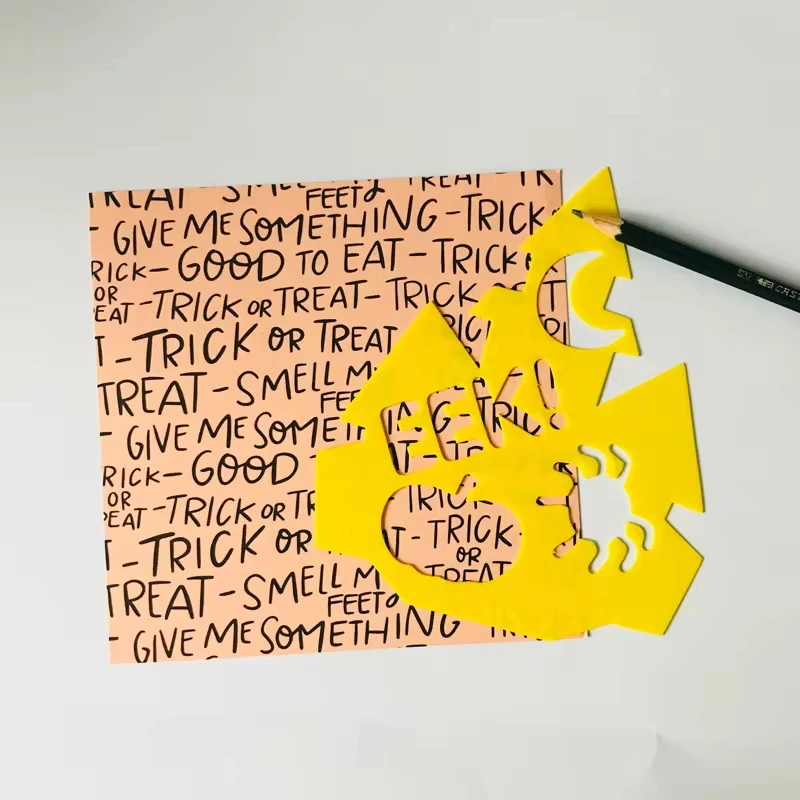 TREAT - SMELL MY TREAT - TR
FEET
- GIVE ME SOMETHING - TRICK
RICK - GOOD TO EAT - TRICK
OR
EAT - TRICK OR TREAT - TRICK
T - TRICK OR TREAT
TREAT - SMELL M
FEE
EEK!
- GIVE ME SOMETH G - TRIC
RICK - GOOD
OR
EAT - TRICK OR TR TRICK
T - TRICK OR T - TRICK
OR
TREAT - SMELL M TREAT
FEET
- GIVE ME SOMETHING